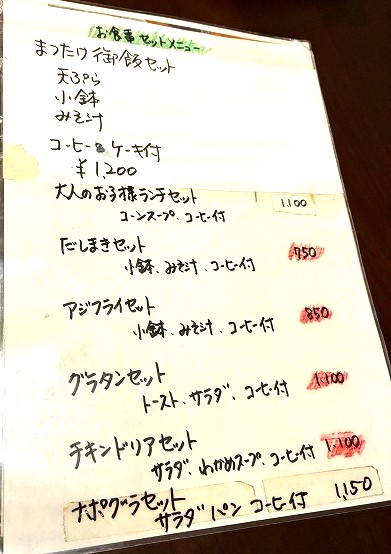 お食事セットメニュー
まつたけ御飯セット
天ぷら
小鉢
みそ汁
コーヒー&ケーキ付
¥1,200
大人のお子様ランチセット 1,100
コーンスープ、コーヒー付
だしまきセット 750
小鉢、みそ汁、コーヒー付
アジフライセット 850
小鉢、みそ汁、コーヒー付
グラタンセット 1,100
トースト、サラダ、コーヒー付
チキンドリアセット 1,100
サラダ、わかめスープ、コーヒー付
ナポグラセット 1,150
サラダ パン コーヒー付